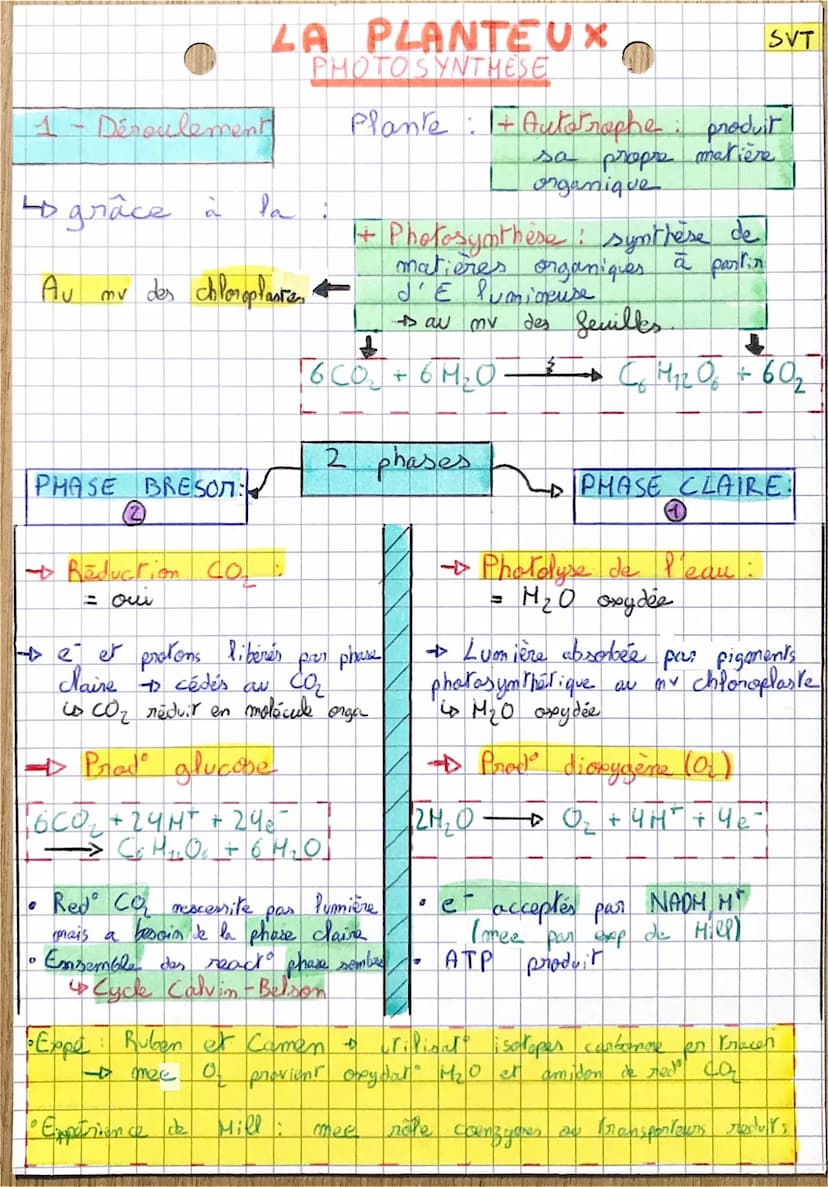 LA PLANTEUX
SVT
PHOTOSYNTHÈSE
1 - Déroulement
Plante :
+ Autotrophe : produit
sa propre matière
organique
↳ grâce à la :
+ Photosynthèse : synthèse de
matières organiques à partir
d'E lumineuse
→ au nv des feuilles.
Au nv des chloroplastes ←
6CO₂ + 6H₂O → C₆H₁₂O₆ + 6O₂
2 phases
PHASE BRESON:
②
→ Réduction CO₂ :
= oui
→ e⁻ et protons libérés par phase
claire → cédés au CO₂
↳ CO₂ réduit en molécule orga
→ Prod° glucose
6CO₂ + 24H⁺ + 24e⁻
→ C₆H₁₂O₆ + 6H₂O
• Red° CO₂ nescessite pas lumière
mais a besoin de la phase claire
• Ensemble des react° phase sombre
↳ Cycle Calvin-Belson
PHASE CLAIRE:
①
→ Photolyse de l'eau :
= H₂O oxydée
→ Lumière absorbée par pigments
photosynthétique au nv chloroplaste
↳ H₂O oxydée
→ Prod° dioxygène (O₂)
2H₂O → O₂ + 4H⁺ + 4e⁻
• e⁻ acceptés par NADH, H⁺
(mee par exp de Hill)
• ATP produit
• Expé : Ruben et Camen → utilisat° isotopes carbone en tracer
→ mee O₂ provient oxydat° H₂O et amidon de red° CO₂
• Expérience de Hill : mee rôle coenzymes ou transporteurs réduits